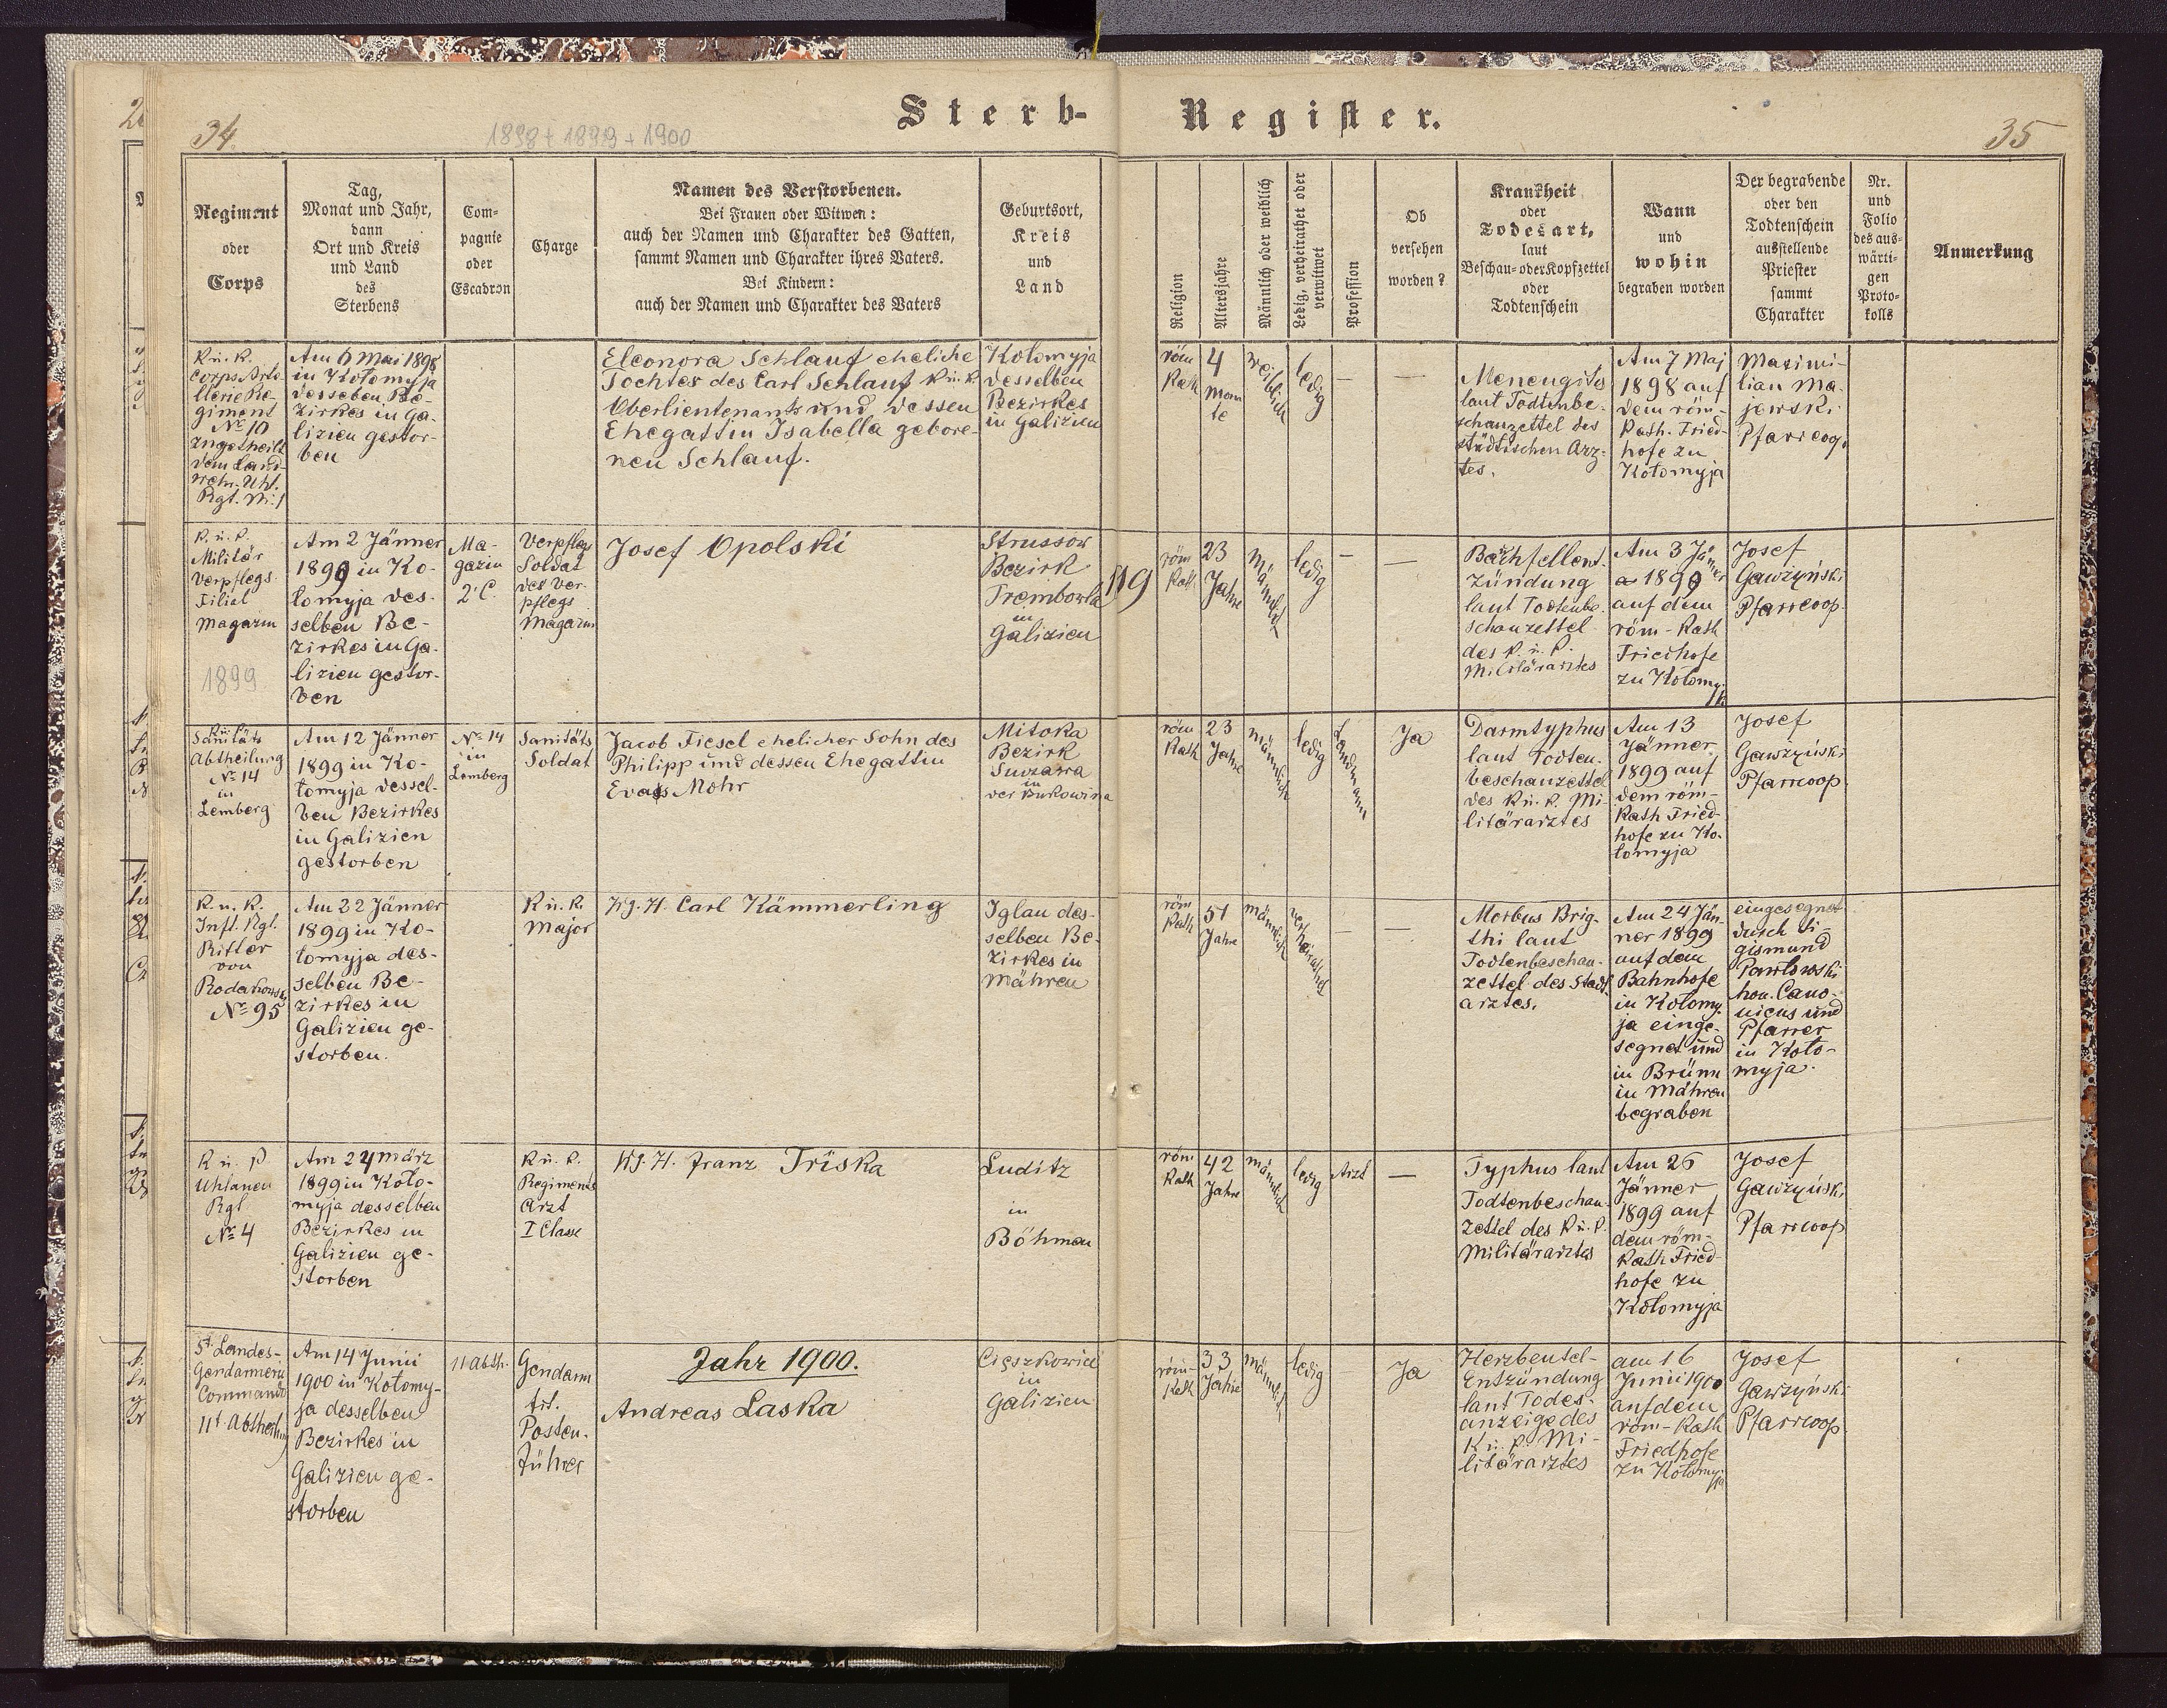 Sterb-Register.
34.
1898 + 1899 + 1900
35
Regiment
oder
Corps
Tag,
Monat und Jahr,
dann
Ort und Kreis
und Land
des
Sterbens
Com-
pagnie
oder
Escadron
Charge
Namen des Verstorbenen.
Bei Frauen oder Witwen:
auch der Namen und Charakter des Gatten,
sammt Namen und Charakter ihres Vaters.
Bei Kindern:
auch der Namen und Charakter des Vaters
Geburtsort,
Kreis
und
Land
Religion
Altersjahre
Männlich oder weiblich
Ledig, verheirathet oder
verwitwet
Profession
Ob
versehen
worden?
Krankheit
oder
Todesart,
laut
Beschau- oder Kopfzettel
oder
Todtenschein
Wann
und
wohin
begraben worden
Der begrabende
oder den
Todtenschein
ausstellende
Priester
sammt
Charakter
Nr.
und
Folio
des aus-
wärti-
gen
Proto-
kolls
Anmerkung
K. u. K.
Corps Arti-
llerie Re-
giment
No 10
zugetheilt
dem Land-
wehr. Uhl.
Rgt. Nr. 1
Am 6 Mai 1898
in Kołomyja
desselben Be-
zirkes in Ga-
lizien gestor-
ben
Eleonora Schlauf eheliche
Tochter des Carl Schlauf k.u.k.
Oberlientenants und dessen
Ehegattin Isabella gebore-
nen Schlauf.
Kołomyja
desselben
Bezirkes
in Galizien
röm
Kath
4
Mona
te
weiblich
ledig
—
—
Menengitis
laut Todtenbe-
schauzettel des
städtischen Arz-
tes.
Am 7 Maj
1898 auf
dem röm-
Kath. Fried-
hofe zu
Kołomyja
Maximi-
lian Ma-
jewski
Pfarrcoop.
K. u. K.
Militär
Verpflegs
Filial
Magazin
1899
Am 2 Jänner
1899 in Ko-
łomyja des-
selben Be-
zirkes in Ga-
lizien gestor-
ben
Ma-
gazin
2. C.
Verpflegs
Soldat
des Ver-
pflegs
Magazin
Josef Opolski
Strussow
Bezirk
Trembowla
in
Galizien
119
röm
Kath
23
Jahre
männlich
ledig
—
—
Bachfellent-
zündung
laut Todtenbe-
schauzettel
des K. u. K.
Militärarztes
Am 3 Jänner
1899
auf dem
röm-Kath
Friedhofe
zu Kołomy-
ja
Josef
Gawżyński
Pfarrcoop.
K. u. K.
Sanitäts
Abtheilung
No 14
in
Lemberg
Am 12 Jänner
1899 in Ko-
łomyja dessel-
ben Bezirkes
in Galizien
gestorben
No 14
in
Lemberg
Sanitäts
Soldat
Jacob Fiesel ehelicher Sohn des
Philipp und dessen Ehegattin
Eva Mohr
Mitoka
Bezirk
Suczawa
in
der Bukowina
röm
Kath
23
Jahre
männlich
ledig
Landmann
Ja
Darmtyphus
laut Todten-
beschauzettel
des K. u. K. Mi-
litärarztes
Am 13
Jänner
1899 auf
dem röm-
Kath Fried-
hofe zu Ko-
łomyja
Josef
Gawżyński
Pfarrcoop.
K. u. K.
Inft. Rgt.
Ritter
von
Rodakowski
No 95
Am 22 Jänner
1899 in Ko-
łomyja des-
selben Be-
zirkes in
Galizien ge-
storben.
K. u. K.
Major
W. H. Carl Kämmerling
Iglau des-
selben Be-
zirkes in
Mähren
röm
Kath
51
Jahre
männlich
verheirathet
—
—
Morbus Brig-
thi laut
Todtenbeschau-
zettel des Stadt
arztes.
Am 24 Jän-
ner 1899
auf dem
Bahnhofe
in Kołomy-
ja einge-
segnet und
in Brünn
in Mähren
begraben
eingesegnet
durch Si-
gismund
Pawłowski
hon. Cano-
nicus und
Pfarrer
in Koło-
myja.
K. u. K.
Uhlanen
Rgt
No 4
Am 24 März
1899 in Koło-
myja desselben
Bezirkes in
Galizien ge-
storben
K. u. K.
Regiments
Arzt
I Classe
W. H. Franz Triska
Luditz
in
Böhmen
röm
Kath
42
Jahre
männlich
ledig
Arzt
—
Typhus laut
Todtenbeschau-
zettel des K. u. K.
Militärarztes
Am 26
Jänner
1899 auf
dem röm-
Kath Fried-
hofe zu
Kołomyja
Josef
Gawżyński
Pfarrcoop
5t Landes-
Gendarmerie
Commando
11t Abtheilung
Am 14 Junii
1900 in Kołomy-
ja desselben
Bezirkes in
Galizien ge-
storben
11 Abth.
Gendarm
tit.
Posten-
führer
Jahr 1900.
Andreas Laska
Cięszkowice
in
Galizien
röm-
Kath
33
Jahre
männlich
ledig
—
Ja
Herzbeutel-
Entzündung
laut Todes-
anzeige des
K. u. K. Mi-
litärarztes
am 16
Junii 1900
auf dem
röm-Kath
Friedhofe
zu Kołomyja
Josef
Gawżyński
Pfarrcoop.